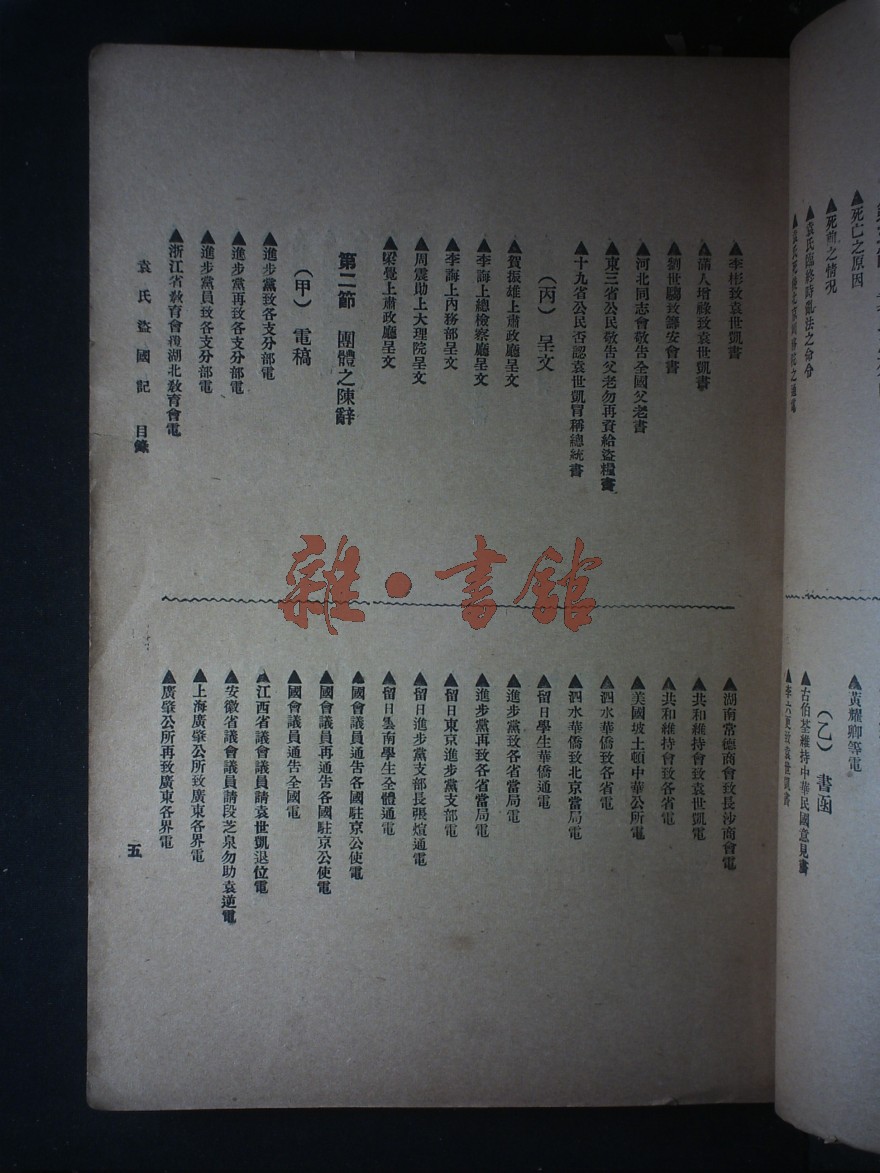 死亡之原因
死時之情况
袁氏臨終時亂法之命令
黃耀卿等電
(乙) 書函
古伯荃維持中華民國意見書
▲李彬致袁世凱書
▲滿人增祿致袁世凱書
▲劉世騶致籌安會書
▲河北同志會敬告全國父老書
▲東三省公民敬告父老勿再資給盜糧書
▲十九省公民否認袁世凱冒稱總統書
(丙) 呈文
▲賀振雄上肅政廳呈文
▲李誨上總檢察廳呈文
▲李誨上內務部呈文
▲周震勛上大理院呈文
▲梁覺上肅政廳呈文
第二節 團體之陳辭
(甲) 電稿
▲進步黨致各支分部電
▲進步黨再致各支分部電
▲進步黨員致各支分部電
▲浙江省敎育會復湖北敎育會電
▲湖南常德商會致長沙商會電
▲共和維持會致袁世凱電
▲共和維持會致各省電
▲美國坡士頓中華公所電
▲泗水華僑致各省電
▲泗水華僑致北京當局電
▲留日學生華僑通電
▲進步黨致各省當局電
▲進步黨再致各省當局電
▲留日東京進步黨支部電
▲留日進步黨支部長張煊通電
▲留日雲南學生全體通電
▲國會議員通告各國駐京公使電
▲國會議員再通告各國駐京公使電
▲國會議員通告全國電
▲江西省議會議員請袁世凱退位電
▲安徽省議會議員請段芝泉勿助袁逆電
▲上海廣肇公所致廣東各界電
▲廣肇公所再致廣東各界電
袁氏盜國記 目錄
五
雜·書館